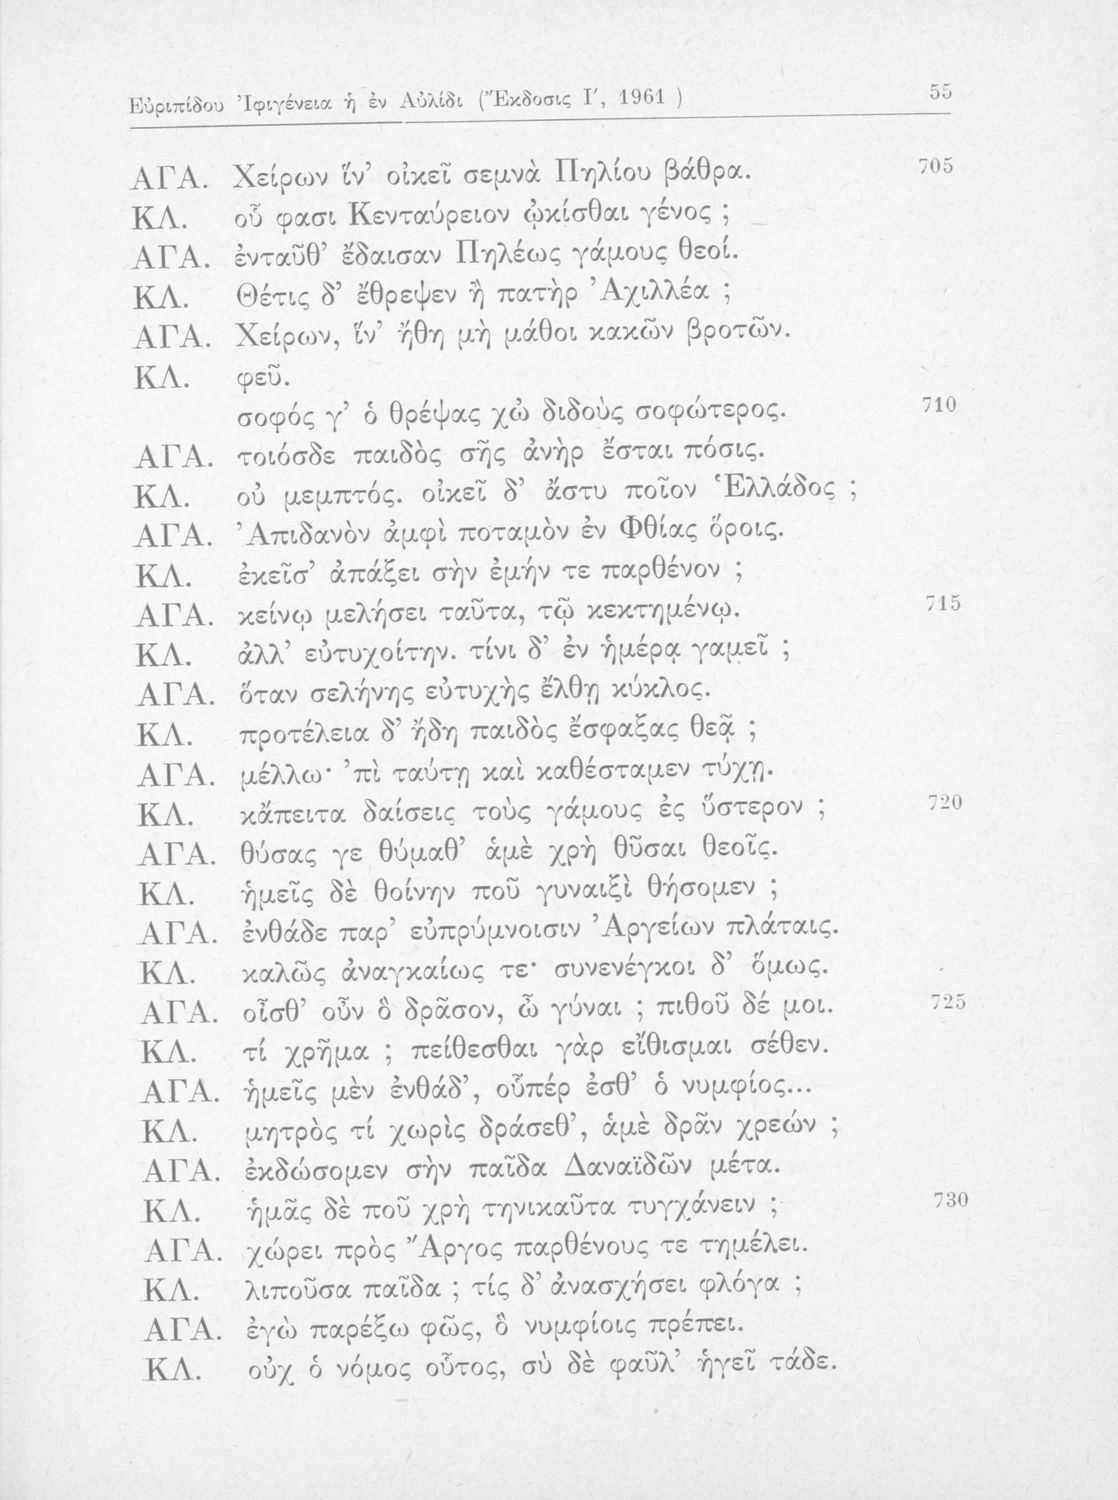 Εὐριπίδου Ἰφιγένεια ἡ ἐν Αὐλίδι (Ἔκδοσις Ι', 1961 ) 55
ΑΓΑ. Χείρων ἵν' οἰκεῖ σεμνὰ Πηλίου βάθρα. 705
ΚΛ. οὗ φασι Κενταύρειον ᾠκίσθαι γένος ;
ΑΓΑ. ἐνταῦθ' ἔδαισαν Πηλέως γάμους θεοί.
ΚΛ. Θέτις δ' ἔθρεψεν ἢ πατὴρ Ἀχιλλέα ;
ΑΓΑ. Χείρων, ἵν' ἤθη μὴ μάθοι κακῶν βροτῶν.
ΚΛ. φεῦ.
σοφός γ' ὁ θρέψας χὠ διδοὺς σοφώτερος. 710
ΑΓΑ. τοιόσδε παιδὸς σῆς ἀνὴρ ἔσται πόσις.
ΚΛ. οὐ μεμπτός. οἰκεῖ δ' ἄστυ ποῖον Ἑλλάδος ;
ΑΓΑ. Ἀπιδανὸν ἀμφὶ ποταμὸν ἐν Φθίας ὅροις.
ΚΛ. ἐκεῖσ' ἀπάξει σὴν ἐμήν τε παρθένον ;
ΑΓΑ. κείνῳ μελήσει ταῦτα, τῷ κεκτημένῳ. 715
ΚΛ. ἀλλ' εὐτυχοίτην. τίνι δ' ἐν ἡμέρᾳ γαμεῖ ;
ΑΓΑ. ὅταν σελήνης εὐτυχὴς ἔλθῃ κύκλος.
ΚΛ. προτέλεια δ' ἤδη παιδὸς ἔσφαξας θεᾷ ;
ΑΓΑ. μέλλω· 'πὶ ταύτῃ καὶ καθέσταμεν τύχῃ.
ΚΛ. κἄπειτα δαίσεις τοὺς γάμους ἐς ὕστερον ; 720
ΑΓΑ. θύσας γε θύμαθ' ἁμὲ χρὴ θῦσαι θεοῖς.
ΚΛ. ἡμεῖς δὲ θοίνην ποῦ γυναιξὶ θήσομεν ;
ΑΓΑ. ἐνθάδε παρ' εὐπρύμνοισιν Ἀργείων πλάταις.
ΚΛ. καλῶς ἀναγκαίως τε· συνενέγκοι δ' ὅμως.
ΑΓΑ. οἶσθ' οὖν ὃ δρᾶσον, ὦ γύναι ; πιθοῦ δέ μοι. 725
ΚΛ. τί χρῆμα ; πείθεσθαι γὰρ εἴθισμαι σέθεν.
ΑΓΑ. ἡμεῖς μὲν ἐνθάδ', οὗπέρ ἐσθ' ὁ νυμφίος...
ΚΛ. μητρὸς τί χωρὶς δράσεθ', ἁμὲ δρᾶν χρεών ;
ΑΓΑ. ἐκδώσομεν σὴν παῖδα Δαναϊδῶν μέτα.
ΚΛ. ἡμᾶς δὲ ποῦ χρὴ τηνικαῦτα τυγχάνειν ; 730
ΑΓΑ. χώρει πρὸς Ἄργος παρθένους τε τημέλει.
ΚΛ. λιποῦσα παῖδα ; τίς δ' ἀνασχήσει φλόγα ;
ΑΓΑ. ἐγὼ παρέξω φῶς, ὃ νυμφίοις πρέπει.
ΚΛ. οὐχ ὁ νόμος οὗτος, σὺ δὲ φαῦλ' ἡγεῖ τάδε.